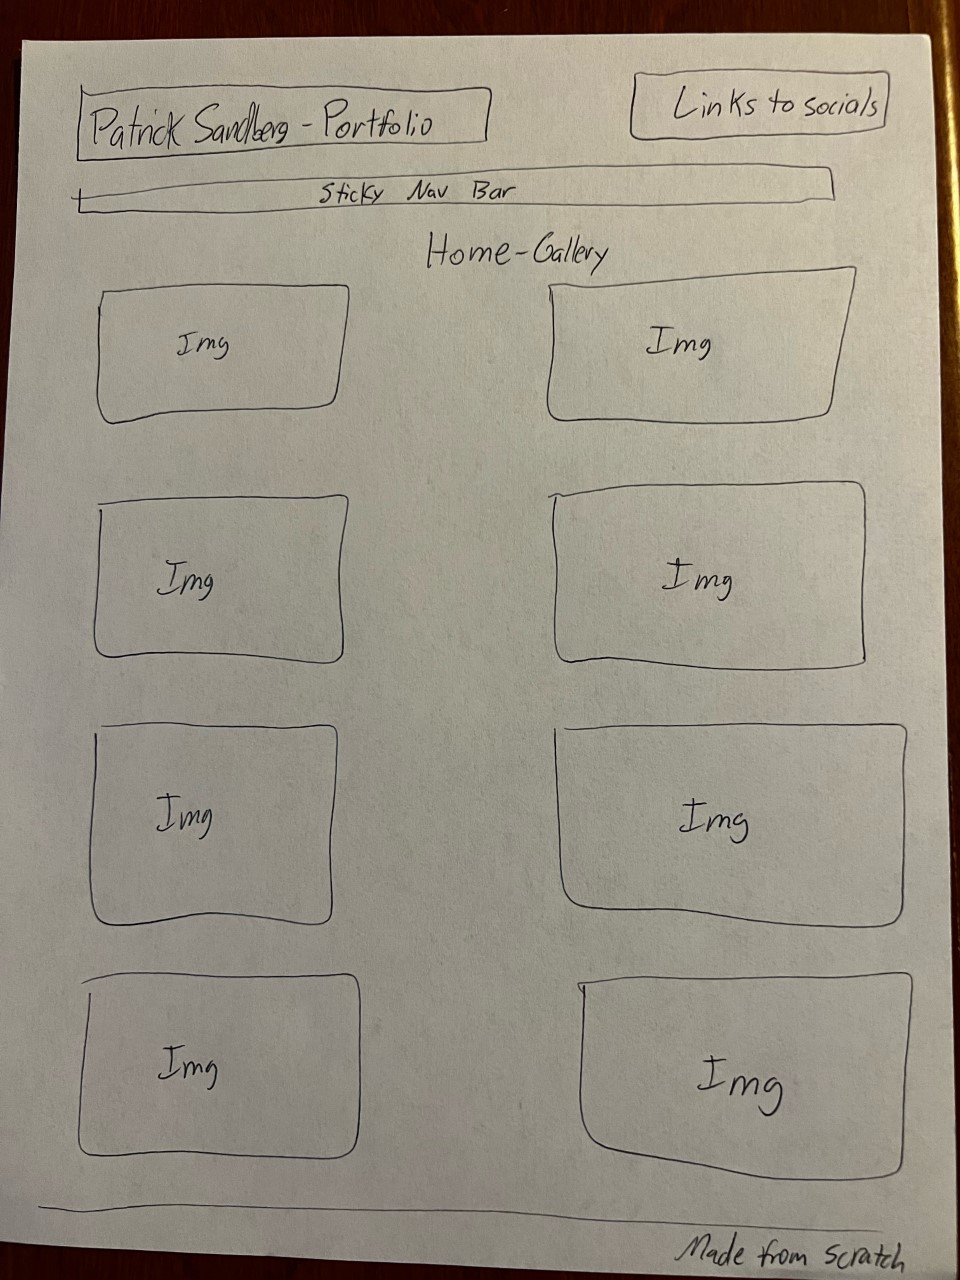 Patrick Sandberg - Portfolio
Links to socials
Sticky Nav Bar
Home-Gallery
Img
Img
Img
Img
Img
Img
Img
Img
Made from scratch